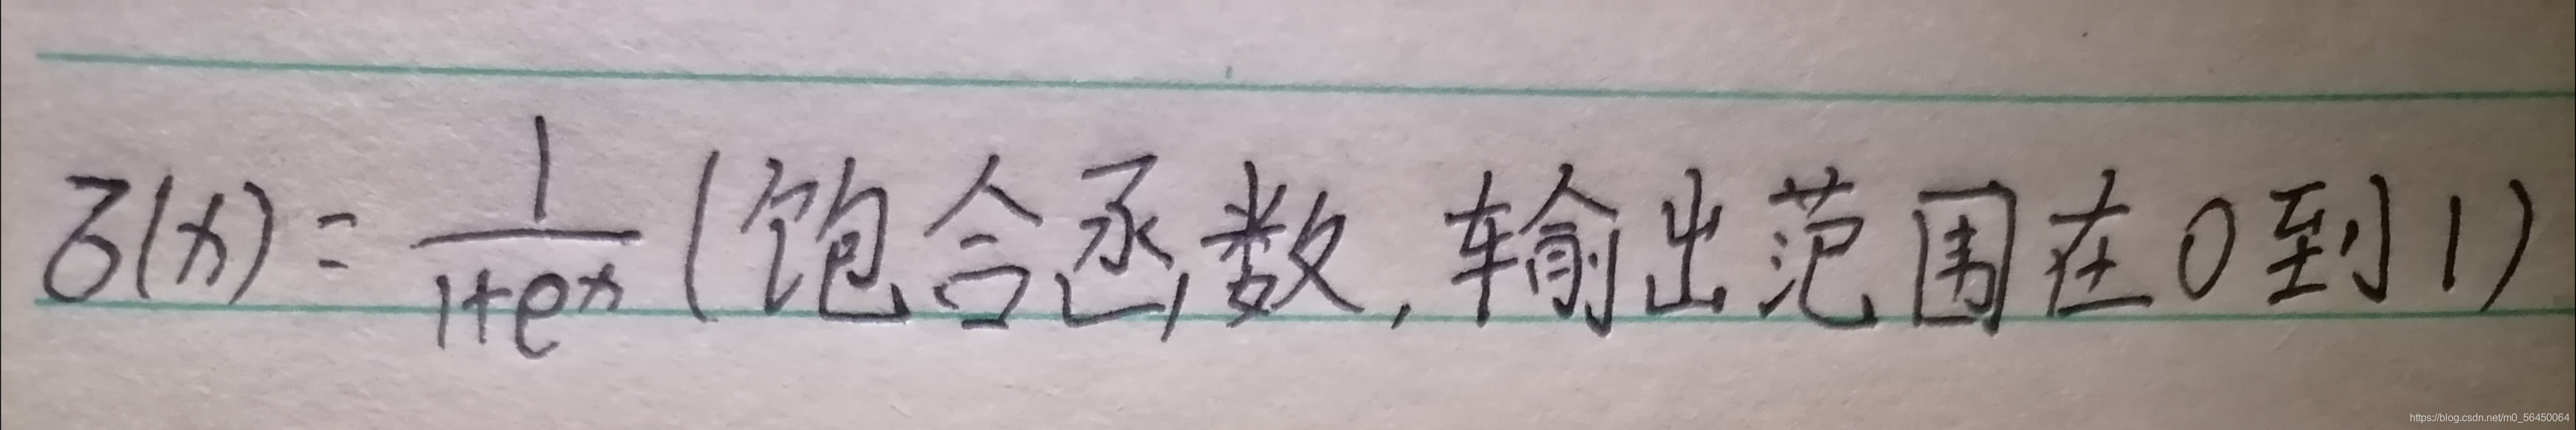 σ(x) = 1/(1+e^x) (饱合函数, 输出范围在0到1)
https://blog.csdn.net/m0_56450064